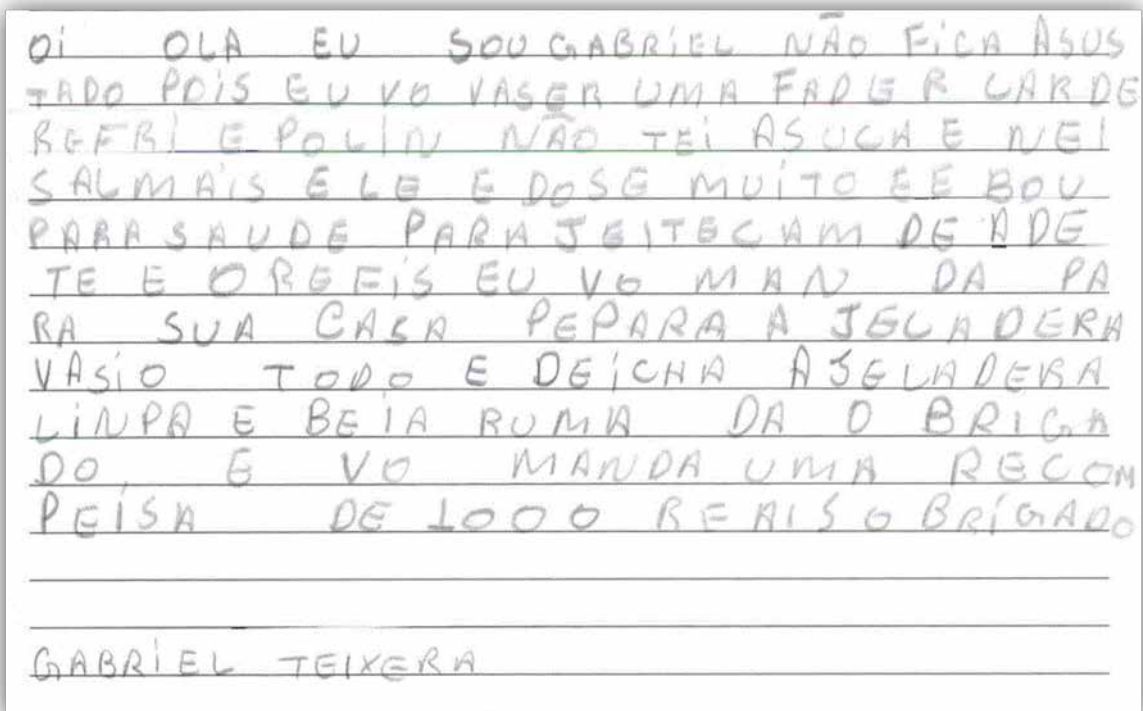 Oi OLA EU SOU GABRiEL NÃO FiCA ASUS
TADO POiS EU VO VASER UMA FADE R CAR DE
REFRI E POLiN NÃO TEi ASUCH E NEI
SALMAiS E LE E DOSE MUiTO E E BOU
PARA SAUDE PARA JEITECAM DE A DE
TE E O REFiS EU VO MAN DA PA
RA SUA CASA PEPARA A JELADERA
VASiO TODO E DEiCHA A JELADERA
LiNPA E BEiA RUMA DA O BRIGA
DO, E VO MANDA UMA RECOM
PEISA DE 1000 REAIS O BRiGADO
GABRiEL TEIXERA